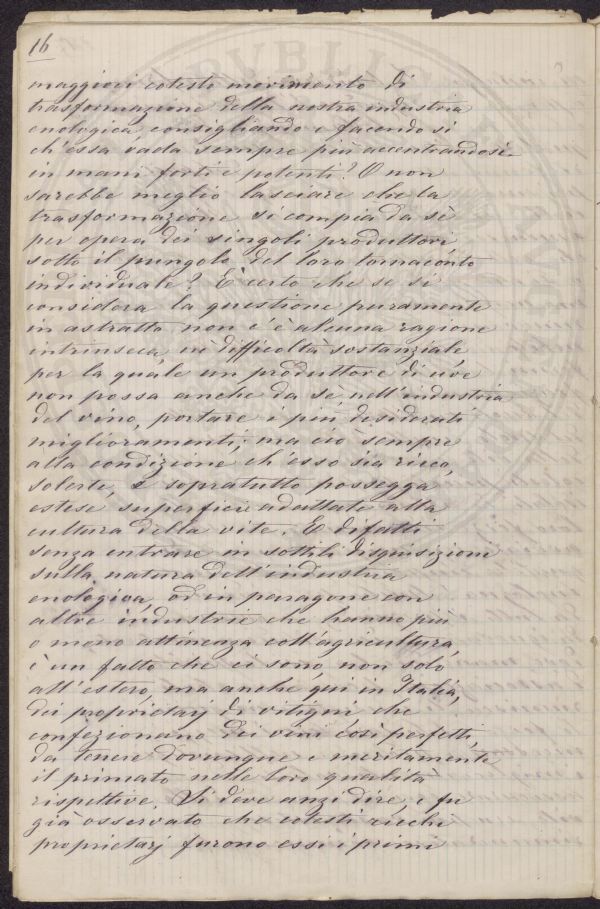 16
maggiori cotesto movimento di
trasformazione della nostra industria
enologica, consigliando e facendo sì
ch'essa vada sempre più accentrandosi
in mani forti e potenti? O non
sarebbe meglio lasciare che la
trasformazione si compia da sè
per opera dei singoli produttori
sotto il pungolo del loro tornaconto
individuale? È certo che se si
considera la questione puramente
in astratto non c'è alcuna ragione
intrinseca, nè difficoltà sostanziale,
per la quale un produttore di uve
non possa anche da sè, nell'industria
del vino, portare i più desiderati
miglioramenti; ma ciò sempre
alla condizione ch'esso sia ricco,
solerte, e sopratutto possegga
estese superficie adattate alla
cultura della vite. E difatti
senza entrare in sottili disquisizioni
sulla natura dell'industria
enologica, od in paragone con
altre industrie che hanno più
o meno attinenza coll'agricultura,
è un fatto che ci sono, non solo
all'estero, ma anche qui in Italia,
dei proprietarj di vitigni che
confezionano dei vini così perfetti,
da tenere dovunque e meritamente
il primato nelle loro qualità
rispettive. Si deve anzi dire, e fu
già osservato che cotesti ricchi
proprietarj furono essi i primi
PVBLIC